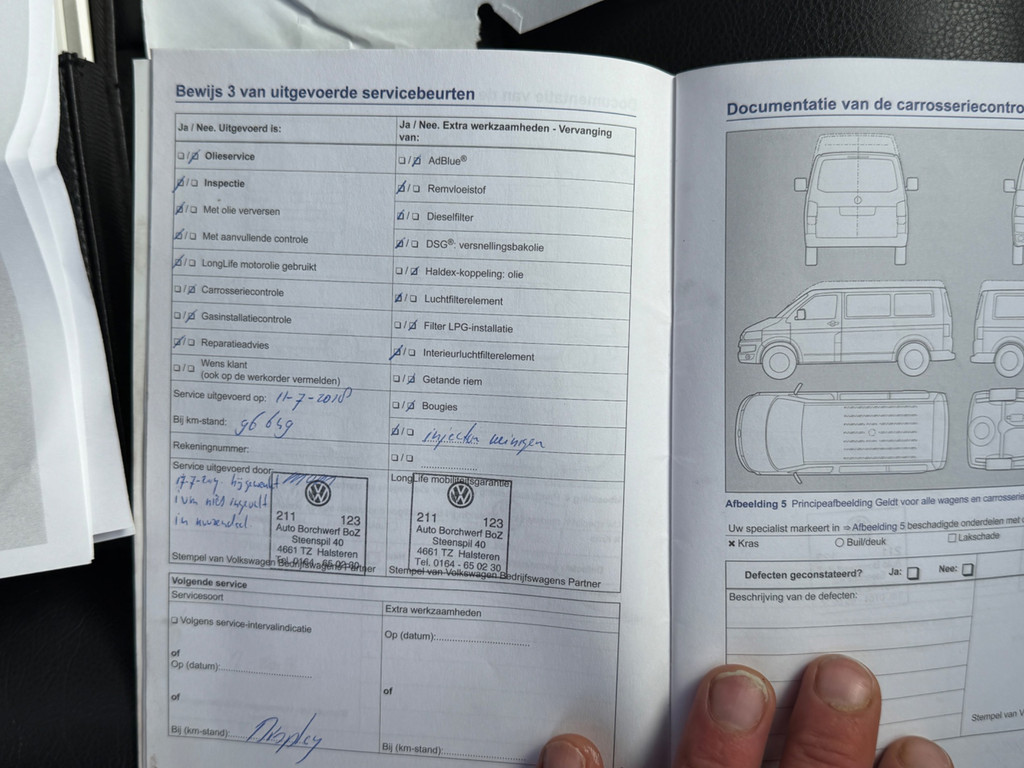 Bewijs 3 van uitgevoerde servicebeurten
Ja / Nee. Uitgevoerd is:
Olieservice
Inspectie
Met olie verversen
Met aanvullende controle
LongLife motorolie gebruikt
Carrosseriecontrole
Gasinstallatiecontrole
Reparatieadvies
Wens klant
(ook op de werkorder vermelden)
Service uitgevoerd op: 11-7-2018
Bij km-stand: 96 649
Rekeningnummer:
Service uitgevoerd door:
in
211 123
Auto Borchwerf BoZ
Steenspil 40
4661 TZ Halsteren
Tel. 0164 - 65 02 30
Stempel van Volkswagen Bedrijfswagens Partner
Ja / Nee. Extra werkzaamheden - Vervanging
van:
AdBlue®
Remvloeistof
Dieselfilter
DSG®: versnellingsbakolie
Haldex-koppeling: olie
Luchtfilterelement
Filter LPG-installatie
Interieurluchtfilterelement
Getande riem
Bougies
injector reinigen
LongLife mobiliteitsgarantie
211 123
Auto Borchwerf BoZ
Steenspil 40
4661 TZ Halsteren
Tel. 0164 - 65 02 30
Stempel van Volkswagen Bedrijfswagens Partner
Volgende service
Servicesoort
Volgens service-intervalindicatie
of
Op (datum):
of
Bij (km-stand): Display
Extra werkzaamheden
Op (datum):
of
Bij (km-stand):
Documentatie van de carrosseriecontro
Afbeelding 5 Principeafbeelding Geldt voor alle wagens en carrosserie
Uw specialist markeert in ⇒ Afbeelding 5 beschadigde onderdelen met
Kras Buil/deuk Lakschade
Defecten geconstateerd? Ja: Nee:
Beschrijving van de defecten:
Stempel van V